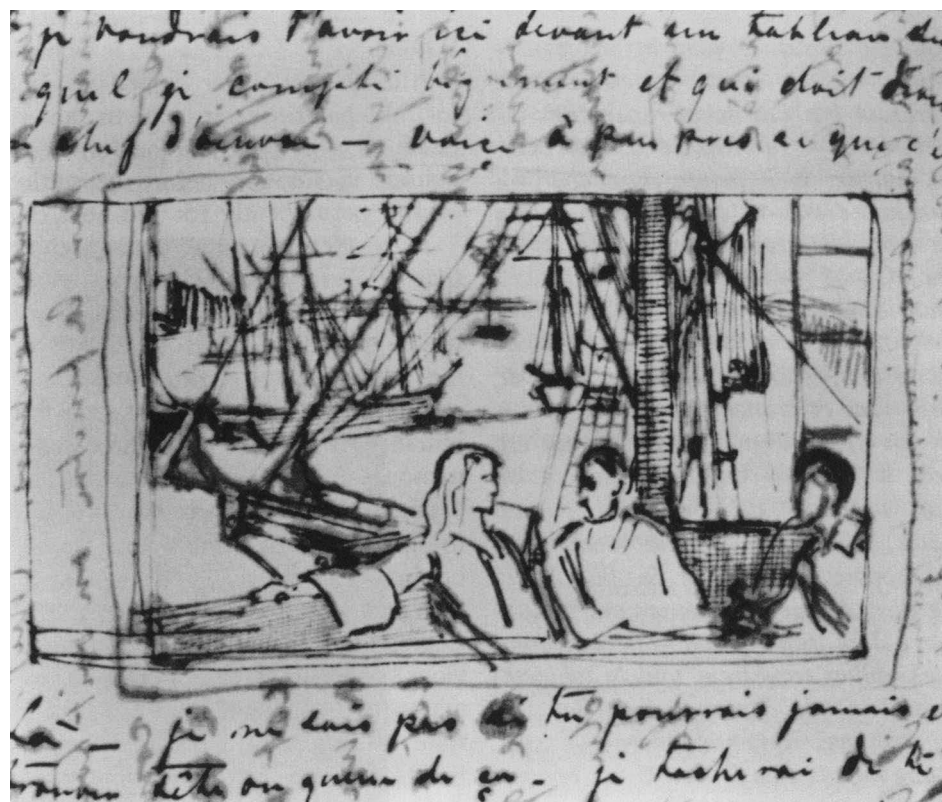 je voudrais t'avoir ici devant un tableau du
quel je compte et qui doit
chef d'œuvre — voici à peu près ce que c'e
Là — je ne sais pas si tu pourrais jamais
trouver tête ou queue de ça — je tacherai de te